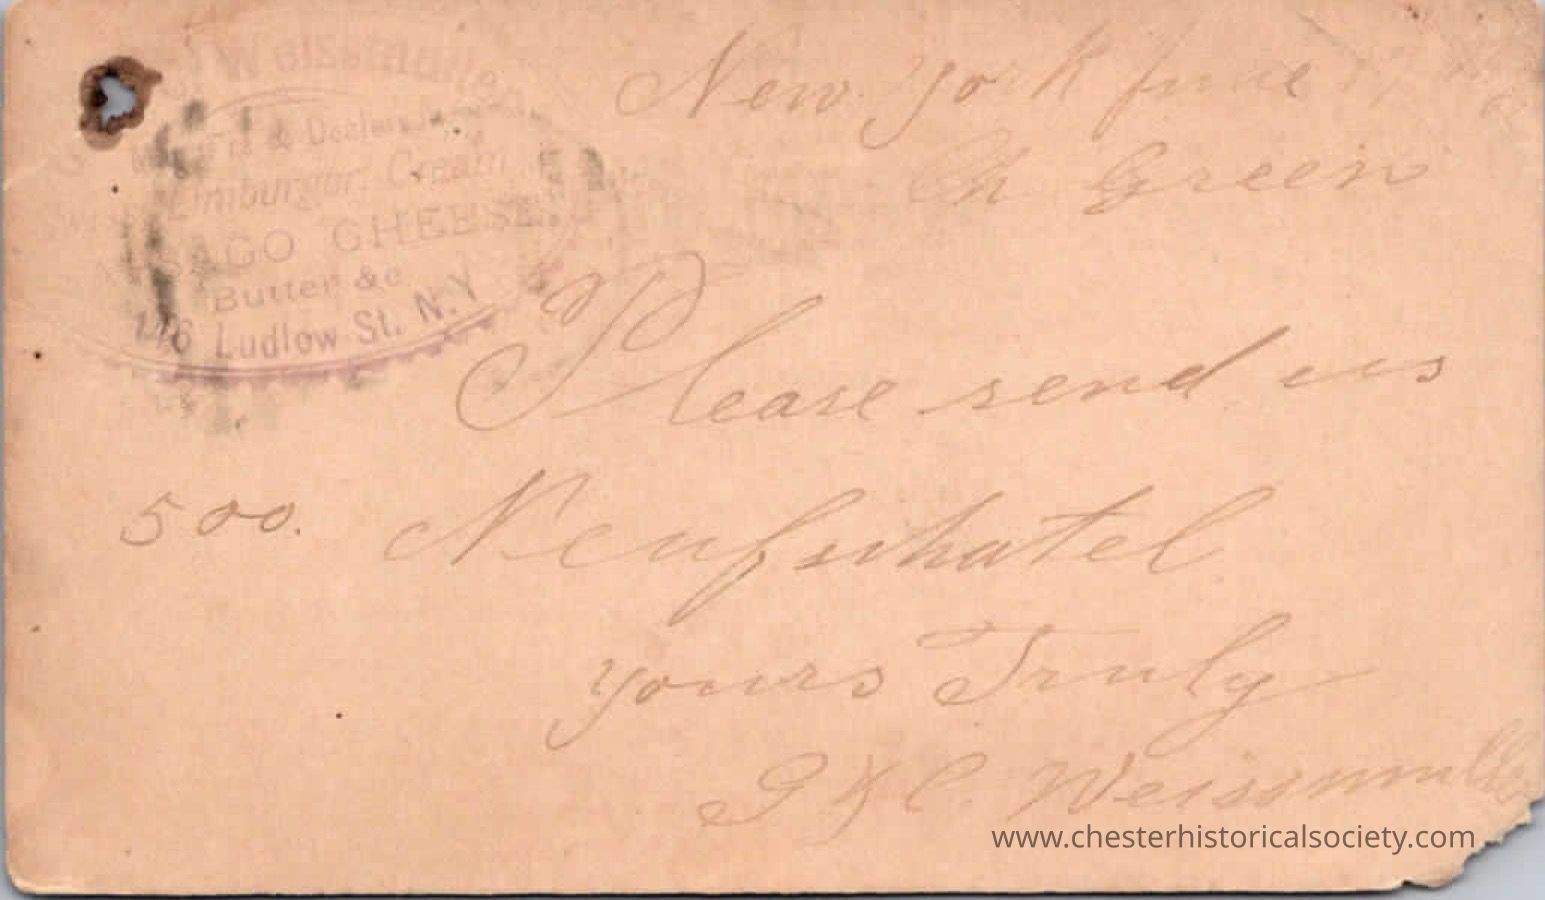 Weissmuller
& Dealers
Limburger, Cream
SAGO CHEESE,
Butter &c
Ludlow St. N.Y
New York June
Ch Green
Please send us
500. Neufschatel
yours Truly
J & C. Weissmuller
www.chesterhistoricalsociety.com